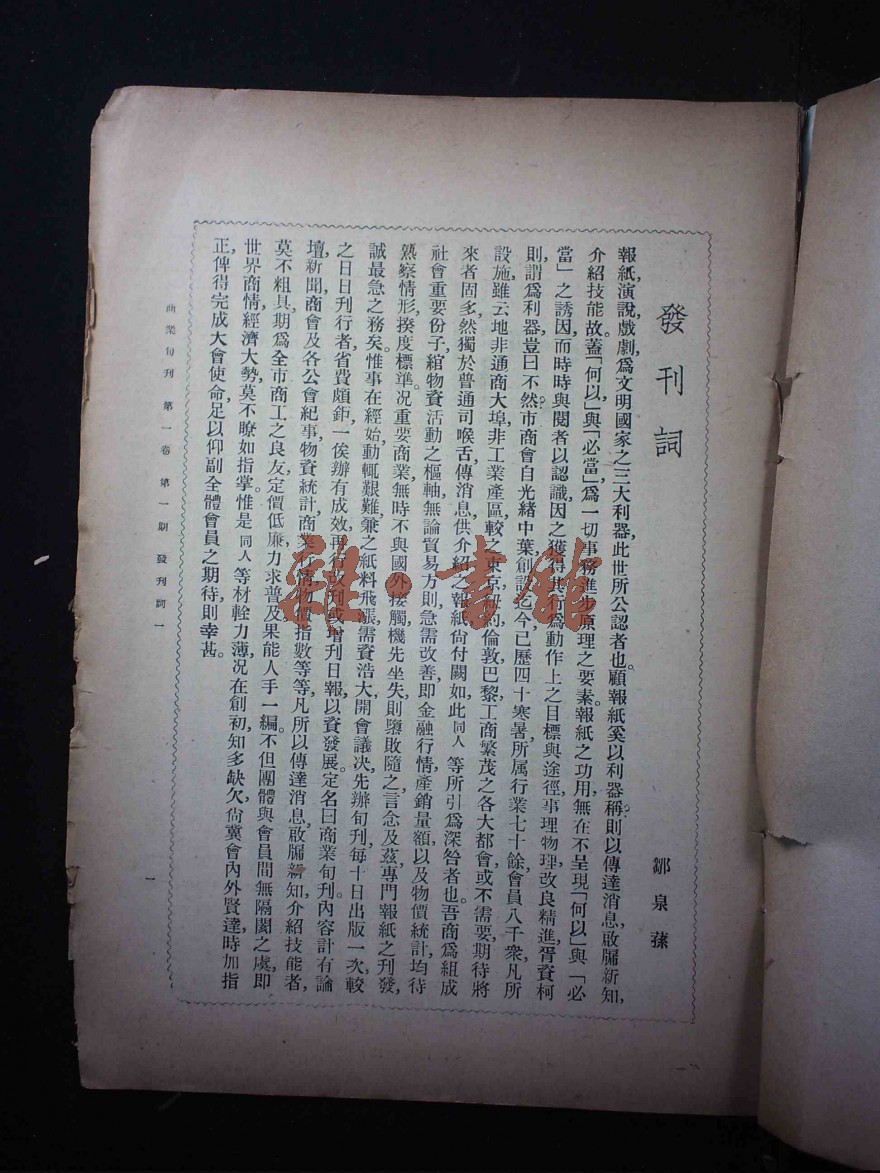 發刊詞
鄒泉蓀
報紙,演說,戲劇,爲文明國家之三大利器,此世所公認者也。顧報紙奚以利器稱?則以傳達消息,啟牖新知,
介紹技能故。蓋「何以」與「必當」爲一切事務進步原理之要素。報紙之功用,無在不呈現「何以」與「必
當」之誘因,而時時與閱者以認識,因之獲得其行爲動作上之目標與途徑,事理物理,改良精進,胥資柯
則,謂爲利器,豈曰不然?市商會自光緒中葉創設,迄今已歷四十寒暑,所属行業七十餘,會員八千衆,凡所
設施,雖云地非通商大埠,非工業產區,較之東京紐約倫敦巴黎工商繁茂之各大都會,或不需要,期待將
來者固多,然獨於普通司喉舌,傳消息,供介紹之報紙,尙付闕如,此同人等所引爲深咎者也。吾商爲組成
社會重要份子,綰物資活動之樞軸,無論貿易方則,急需改善,即金融行情,產銷量額,以及物價統計,均待
熟察情形,揆度標準。况重要商業,無時不與國外接觸,機先坐失,則墮敗隨之,言念及茲,專門報紙之刊發,
誠最急之務矣。惟事在經始,動輒艱難,兼之紙料飛漲,需資浩大,開會議决,先辦旬刊,每十日出版一次,較
之日日刊行者,省費頗鉅,一俟辦有成效,再行改刊或增刊日報,以資發展。定名曰商業旬刊,內容計有論
壇,新聞,商會及各公會紀事,物資統計,商業行情,物價指數等等,凡所以傳達消息,啟牖新知,介紹技能者,
莫不粗具,期爲全市商工之良友,定價低廉,力求普及,果能人手一編。不但團體與會員間無隔閡之處,即
世界商情,經濟大勢,莫不瞭如指掌。惟是同人等材輇力薄,况在創初,知多缺欠,尙冀會內外賢達,時加指
正,俾得完成大會使命,足以仰副全體會員之期待,則幸甚。
商業旬刊 第一卷 第一期 發刊詞 一
一
雜·書館